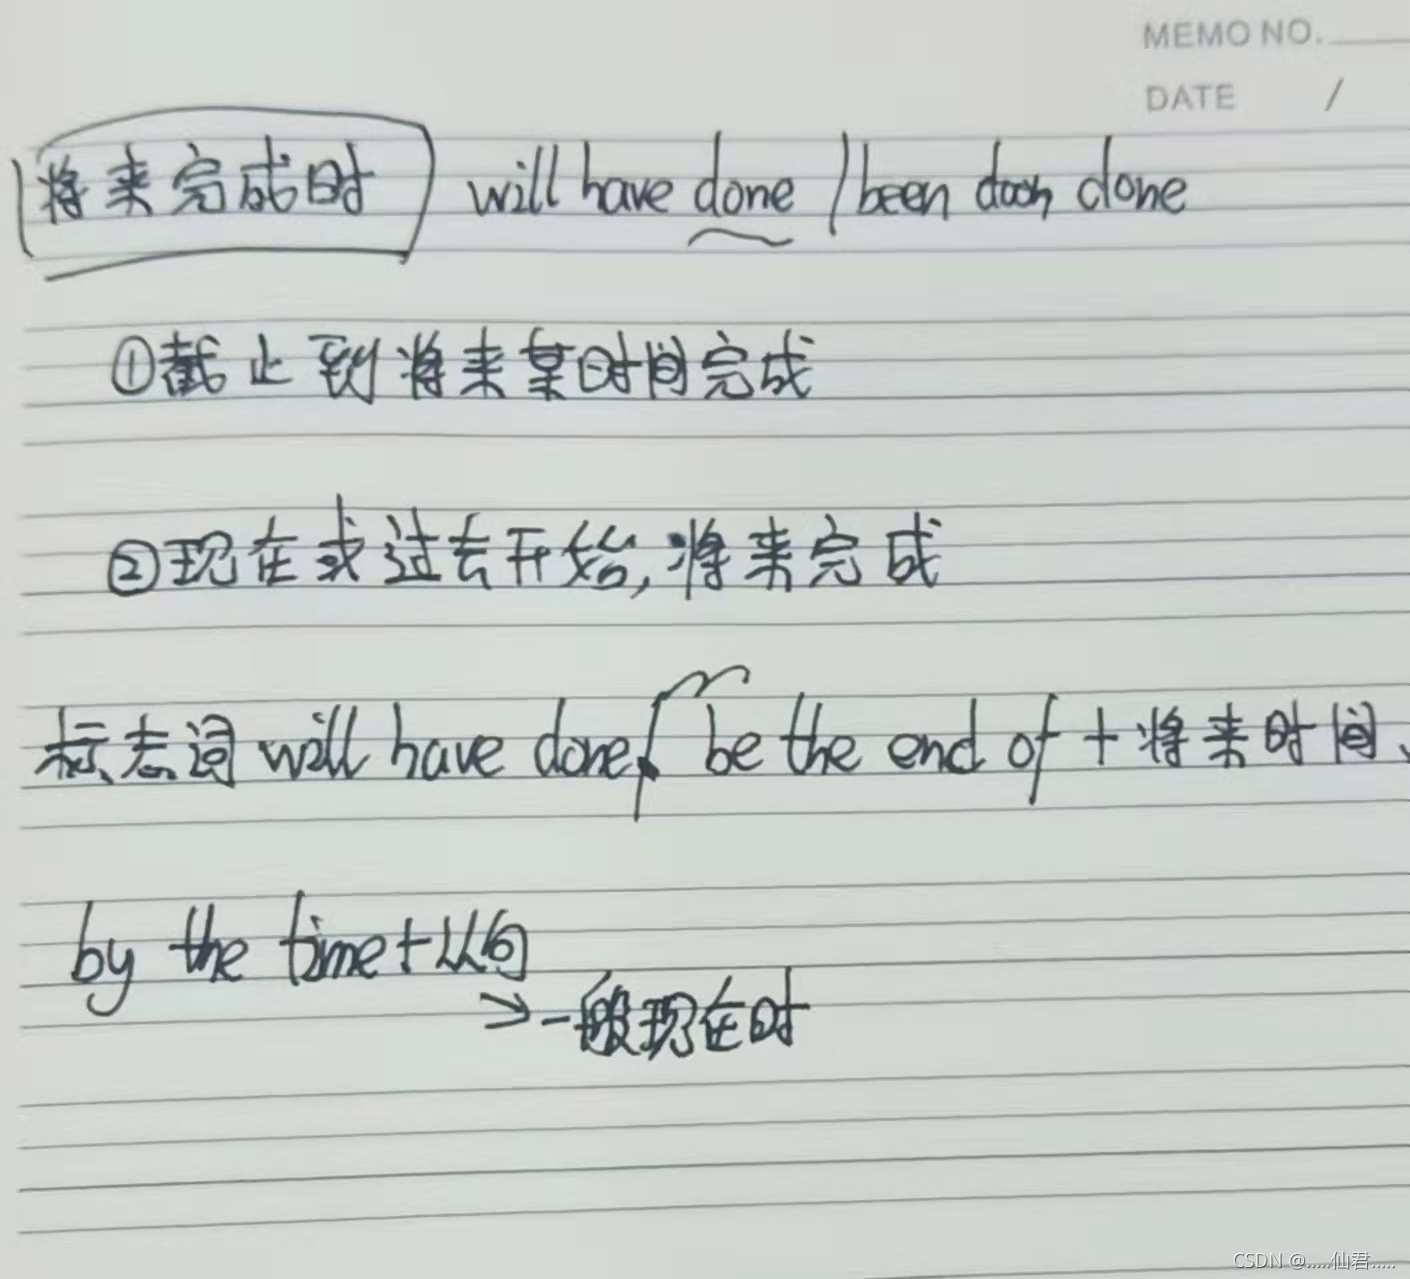 MEMO NO.
DATE /
将来完成时 will have done / been done
①截止到将来某时间完成
②现在或过去开始,将来完成
标志词 will have done be the end of + 将来时间、
by the time+从句
→一般现在时
CSDN @.....仙君.....